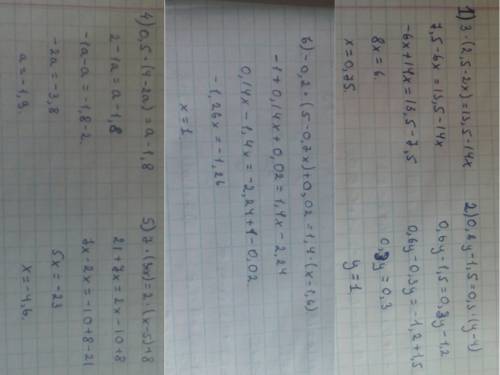 1) 3·(2,5-2x)=13,5-14x
7,5-6x=13,5-14x
-6x+14x=13,5-7,5
8x=6
x=0,75.
2) 0,6y-1,5=0,3·(y-4)
0,6y-1,5=0,3y-1,2
0,6y-0,3y=-1,2+1,5
0,3y=0,3
y=1
6) -0,2·(5-0,7x)+0,02=1,4·(x-1,6)
-1+0,14x+0,02=1,4x-2,24
0,14x-1,4x=-2,24+1-0,02
-1,26x=-1,26
x=1
4) 0,5·(4-2a)=a-1,8
2-1a=a-1,8
-1a-a=-1,8-2.
-2a=-3,8
a=-1,9.
5) 7·(3x)=2·(x-5)+8
21+7x=2x-10+8
7x-2x=-10+8-21
5x=-23
x=-4,6.